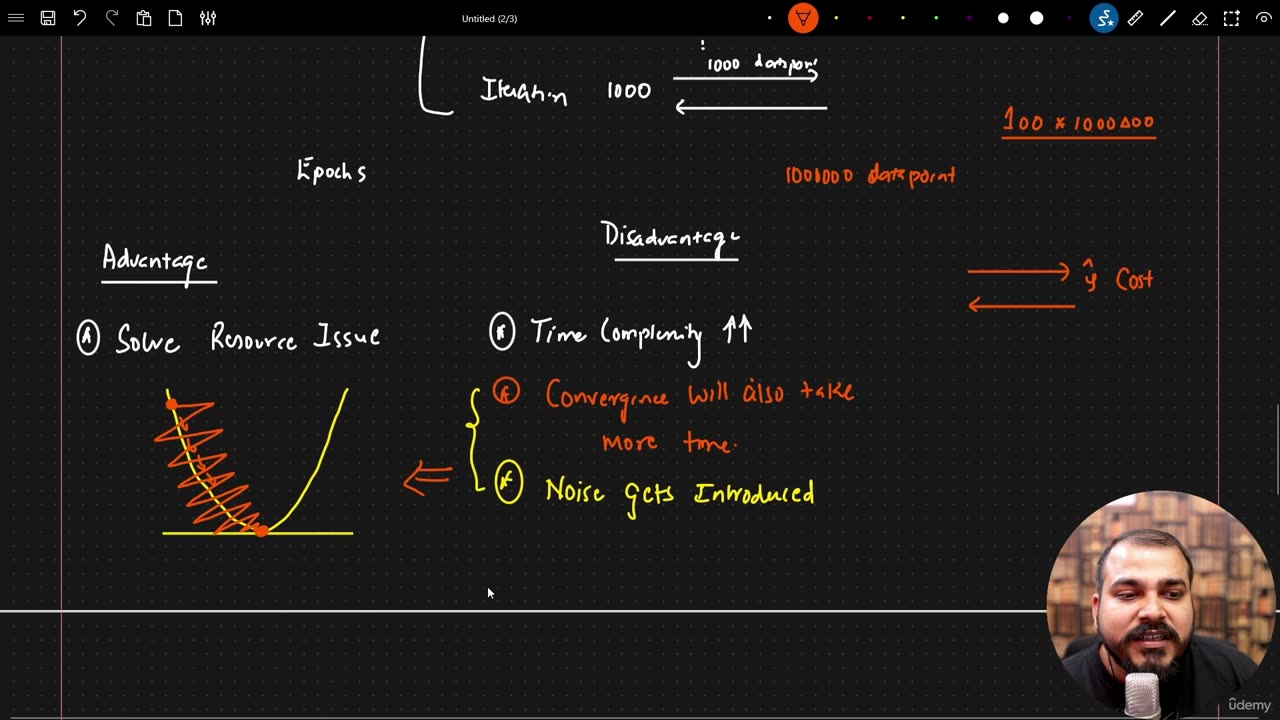 Untitled (2/3)
1000 datapoint
Iteration 1000
100 * 1000000
Epochs
1000000 datapoint
Advantage
Disadvantage
ŷ Cost
Solve Resource Issue
Time Complexity ↑↑
Convergence will also take
more time.
Noise gets Introduced
ûdemy